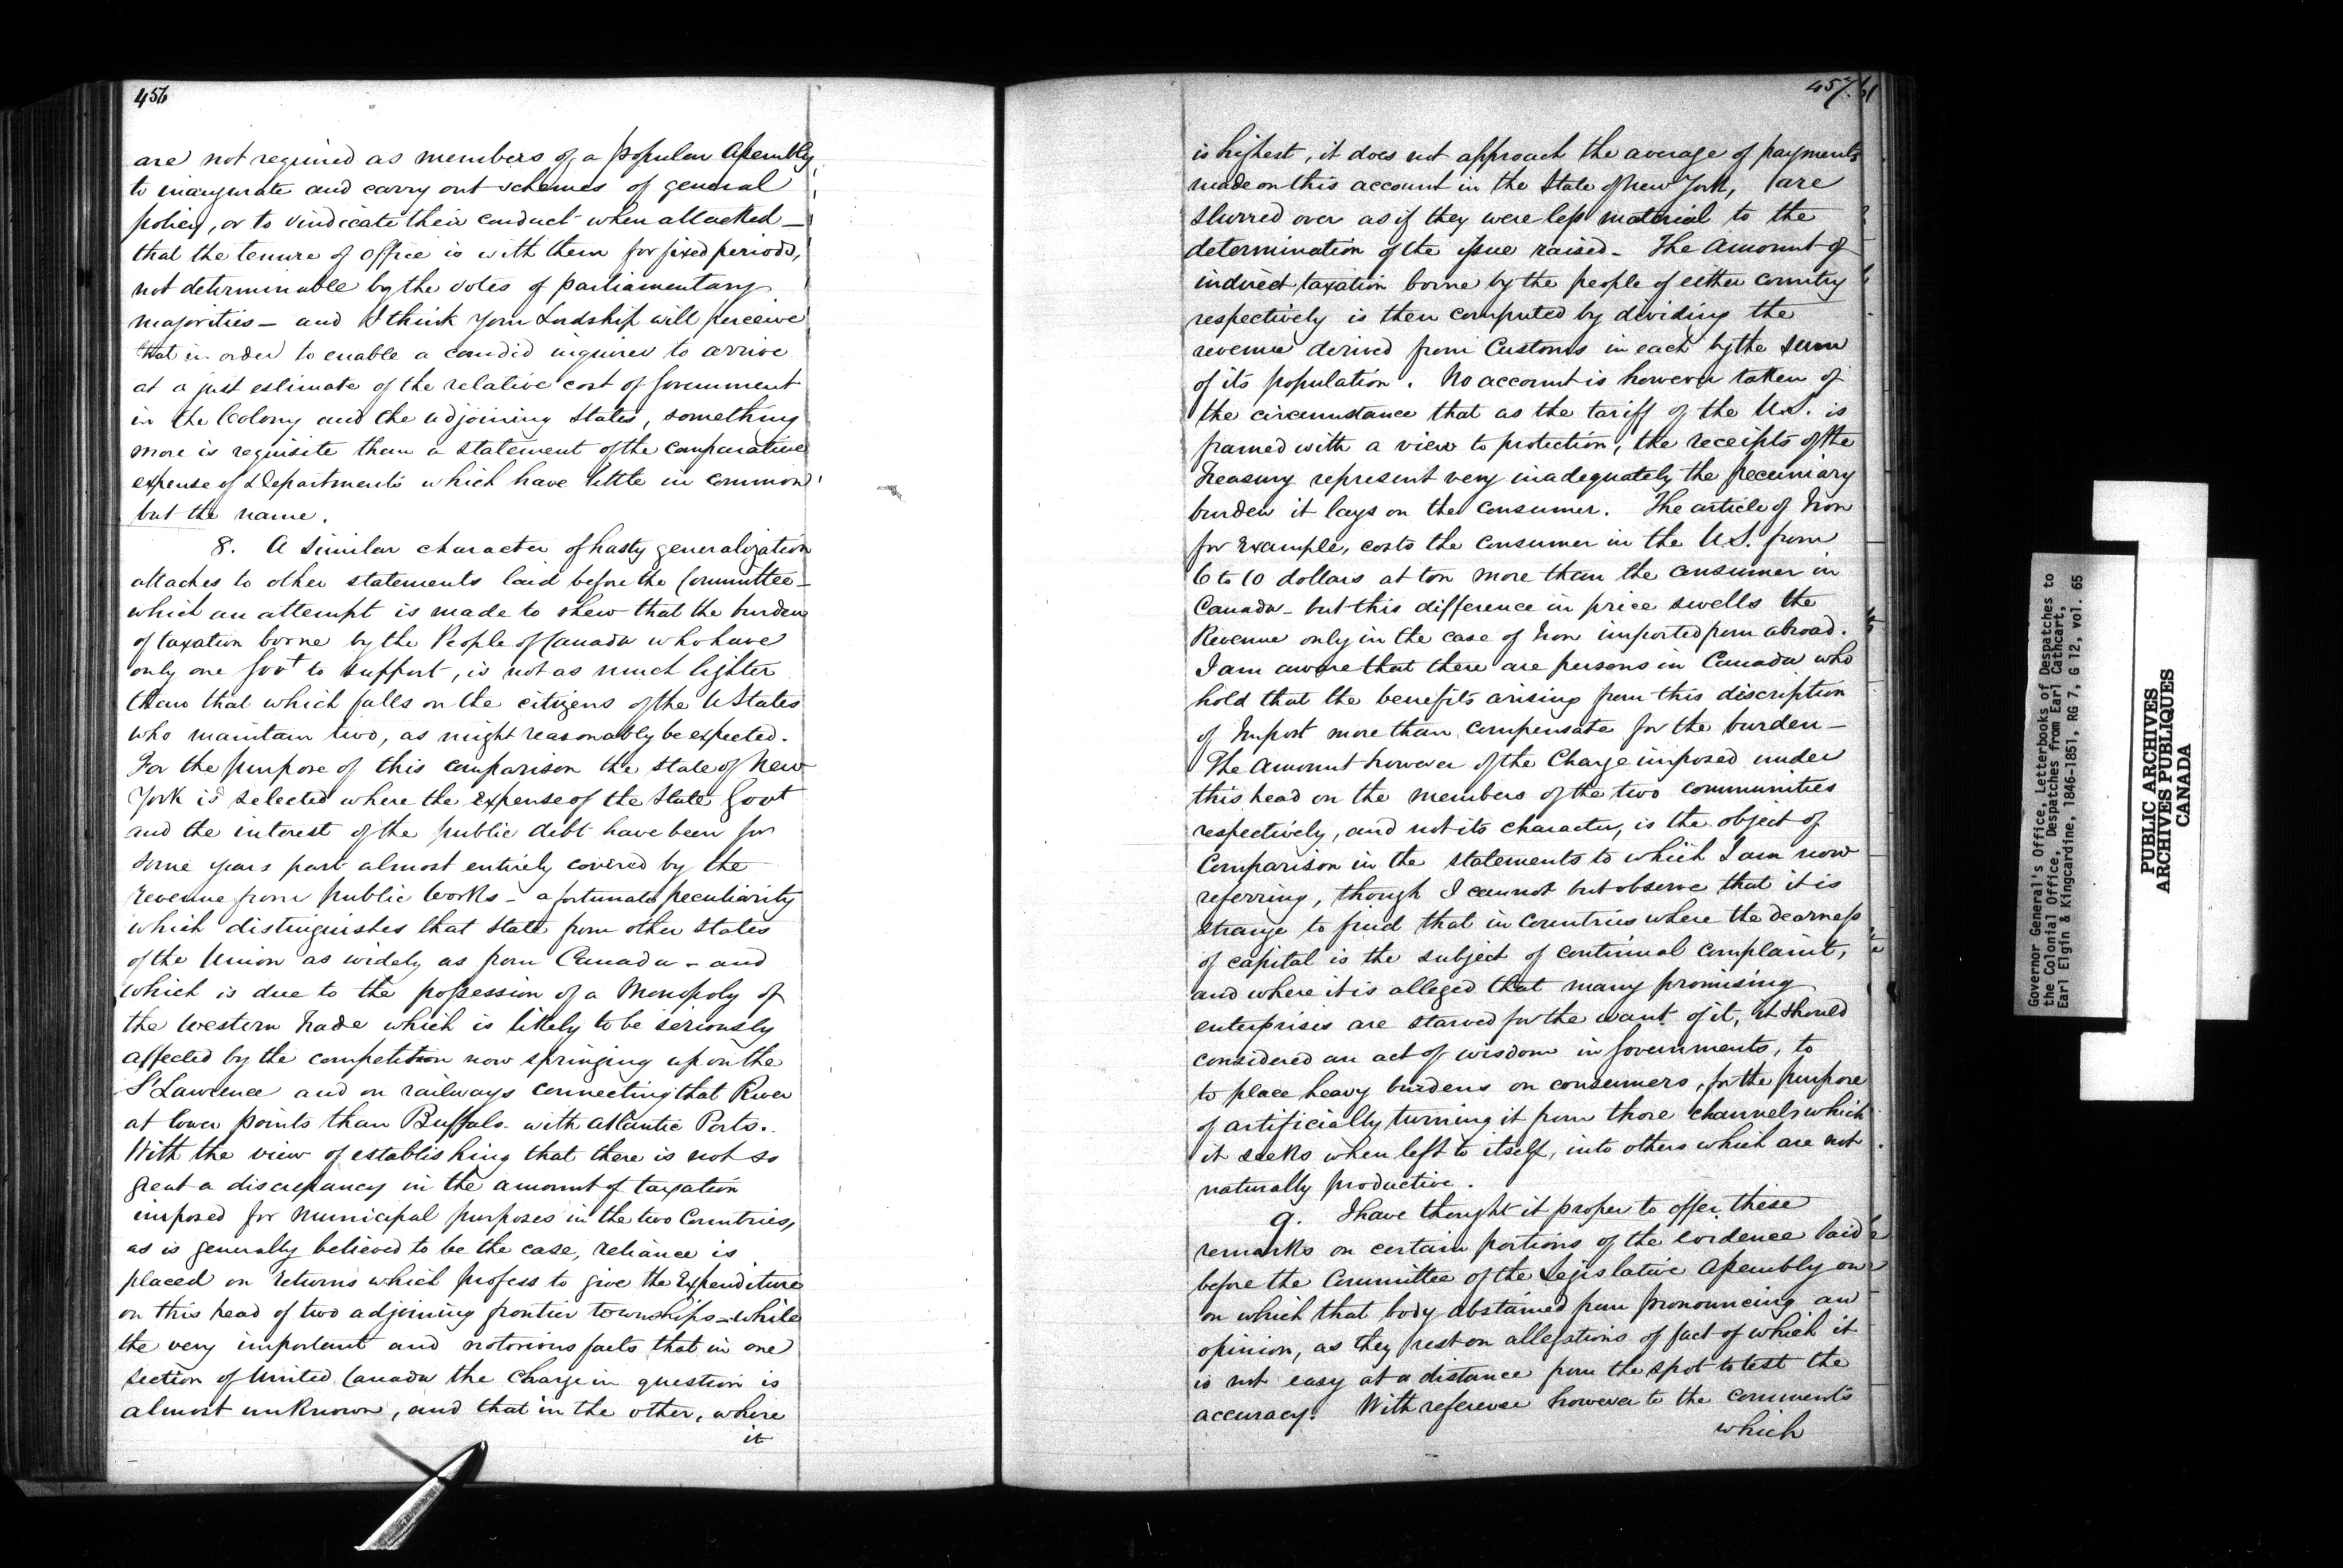 456
are not required as members of a popular Assembly
to inaugurate and carry out schemes of general
policy, or to vindicate their conduct when attacked –
that the tenure of office is with them for fixed periods,
not determinable by the votes of parliamentary
majorities – and I think Your Lordship will perceive
that in order to enable a candid inquirer to arrive
at a just estimate of the relative cost of Government
in the Colony and the adjoining States, something
more is requisite than a statement of the comparative
expense of Departments which have little in common
but the name.
8. A similar character of hasty generalization
attaches to other statements laid before the Committee –
which an attempt is made to shew that the burden
of taxation borne by the People of Canada who have
only one Govt to support, is not as much lighter
than that which falls on the citizens of the U States
who maintain two, as might reasonably be expected.
For the purpose of this comparison the state of New
York is selected where the expense of the State Govt
and the interest of the public debt have been for
some years past almost entirely covered by the
revenue from public Works – a fortunate peculiarity
which distinguishes that State from other States
of the Union as widely as from Canada – and
which is due to the possession of a Monopoly of
the Western Trade which is likely to be seriously
affected by the competition now springing up on the
St Lawrence and on railways connecting that River
at lower points than Buffalo with Atlantic Ports.
With the view of establishing that there is not so
great a discrepancy in the amount of taxation
imposed for Municipal purposes in the two Countries,
as is generally believed to be the case, reliance is
placed on returns which profess to give the Expenditure
on this head of two adjoining frontier townships – while
the very important and notorious facts that in one
section of United Canada the charge in question is
almost unknown, and that in the other, where
it
457.
is highest, it does not approach the average of payments
made on this account in the State of New York, are
slurred over as if they were less material to the
determination of the issue raised – The amount of
indirect taxation borne by the people of either country
respectively is then computed by dividing the
revenue derived from Customs in each by the sum
of its population. No account is however taken of
the circumstance that as the tariff of the U.S. is
framed with a view to protection, the receipts of the
Treasury represent very inadequately the pecuniary
burden it lays on the Consumer. The article of Iron
for Example, costs the consumer in the U.S. from
6 to 10 dollars at ton more than the consumer in
Canada – but this difference in price swells the
Revenue only in the case of Iron imported from abroad.
I am aware that there are persons in Canada who
hold that the benefits arising from this discription
of Impost more than compensate for the burden –
The Amount however of the Charge imposed under
this head on the members of the two communities
respectively, and not its character, is the object of
Comparison in the statements to which I am now
referring, though I cannot but observe that it is
strange to find that in Countries where the dearness
of capital is the subject of continual complaint,
and where it is alleged that many promising
enterprises are starved for the want of it, it should
considered an act of wisdom in Governments, to
to place heavy burdens on consumers, for the purpose
of artificially turning it from those channels which
it seeks when left to itself, into others which are not
naturally productive.
9. I have thought it proper to offer these
remarks on certain portions of the evidence laid
before the Committee of the Legislative Assembly on
on which that body abstained from pronouncing an
opinion, as they rest on allegations of fact of which it
is not easy at a distance from the spot to test the
accuracy. With reference however to the comments
which
Governor General's Office, Letterbooks of Despatches to
the Colonial Office, Despatches from Earl Cathcart,
Earl Elgin & Kingcardine, 1846-1851, RG 7, G 12, vol. 65
PUBLIC ARCHIVES
ARCHIVES PUBLIQUES
CANADA